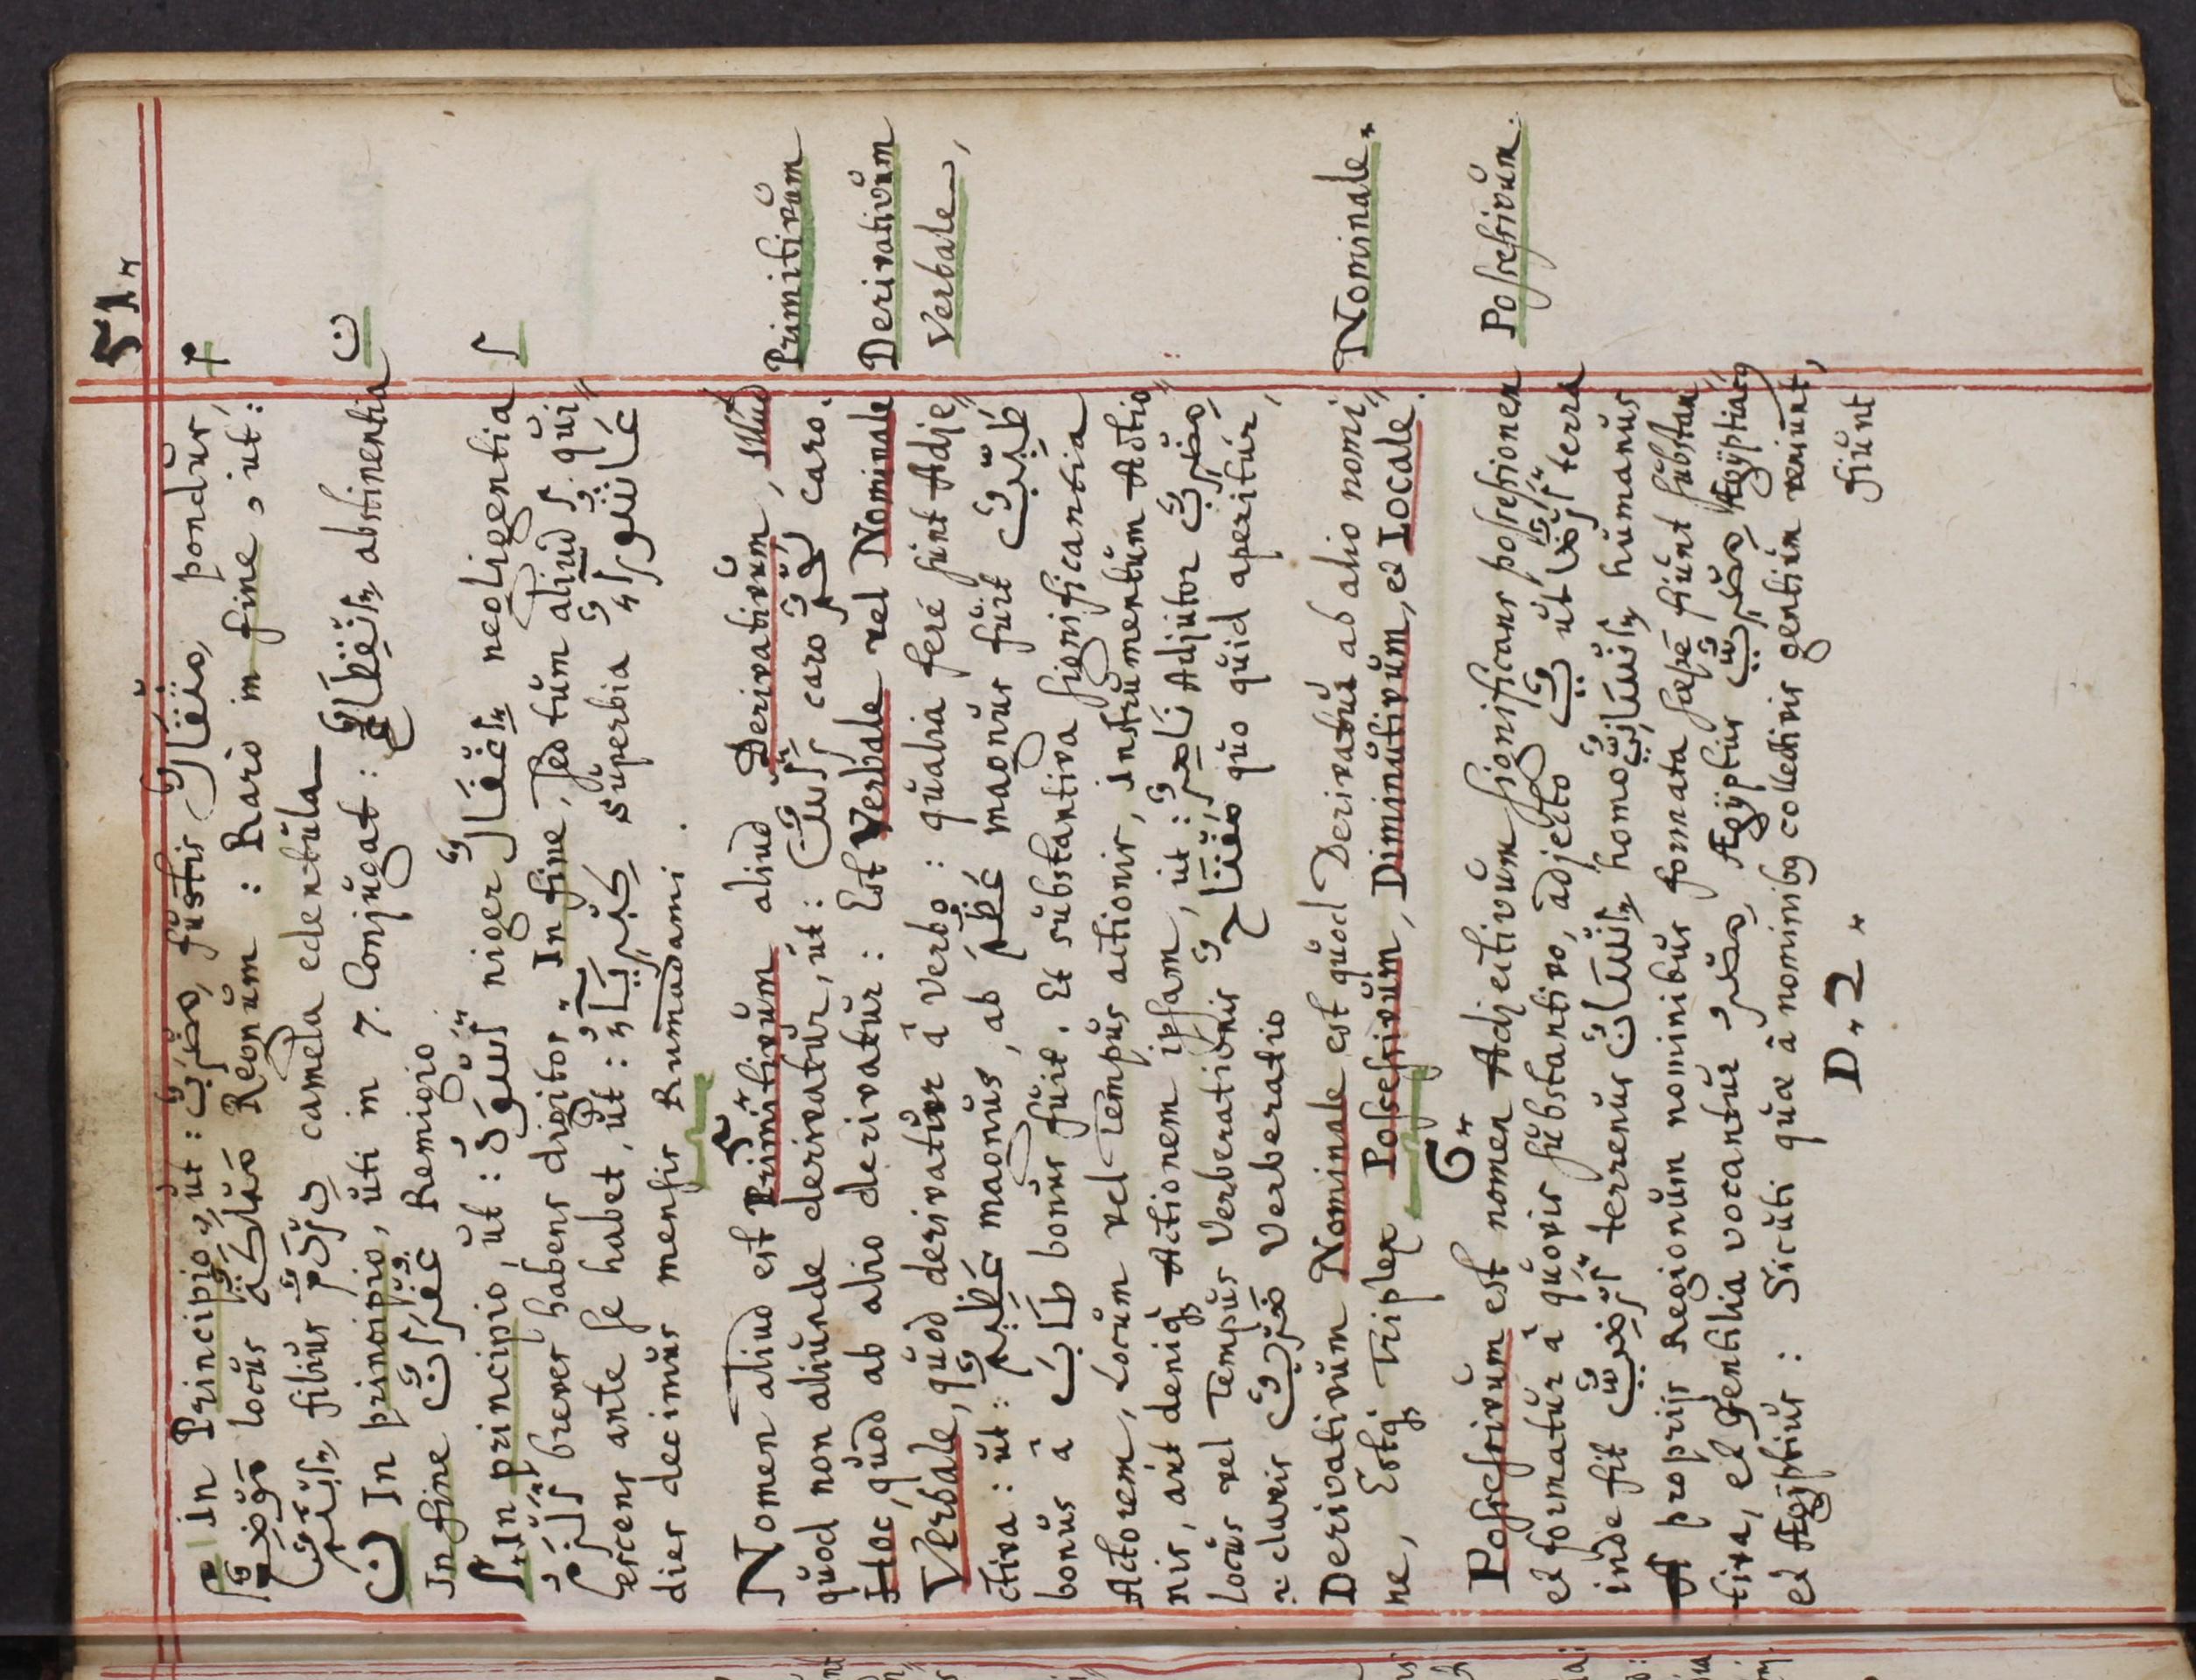 51.
م In Principio, ut: مِضْرَبٌ fustis مِثْقَالٌ pondus, م
مَوْضِعٌ locus مَمْلَكَةٌ Regnum : Raro in fine, ut:
اِبْنُمٌ filius دِلْقِمٌ camela edentula
ن In principio, uti in 7. Conjugat: اِنْقِطَاعٌ abstinentia ن
In fine غُفْرَانٌ Remigio
ا In principio, ut: أَسْوَدُ niger اِغْفَالٌ negligentia ا
breves habens digitos. In fine, sed tum aliud ا qui⸗
escens ante se habet, ut: كِبْرِيَاءُ superbia عَاشُورَاءُ
dies decimus mensis Rumadami.
5.
Nomen aliud est Primitivum aliud Derivativum, illud Primitivum
quod non aliunde derivatur, ut: caro لَحْمٌ caro.
Hoc, quod ab alio derivatur: Est Verbale vel Nominale Derivativum
Verbale, quod derivatur à Verbo: qualia ferè sunt Adje⸗ Verbale,
ctiva: ut: عَظِيمٌ magnus, ab عَظُمَ magnus fuit طَيِّبٌ
bonus à طَابَ bonus fuit. Et substantiva significantia
Actorem, Locum vel Tempus actionis, instrumentum Actio⸗
nis, aut deniq; Actionem ipsam, ut: نَاصِرٌ Adjutor مَضْرِبٌ
locus vel Tempus Verberationis مِفْتَاحٌ quo quid aperitur,
clavis ضَرْبٌ Verberatio
Derivativum Nominale est quod Derivatur ab alio nomi⸗ Nominale.
ne, Estq; Triplex Possessivum, Diminutivum, et Locale.
6.
Possessivum est nomen Adjectivum significans possessionem Possessivum.
et formatur à quovis substantivo, adjecto يٌّ ut أَرْضٌ terra
inde fit أَرْضِيٌّ terrenus اِنْسَانٌ homo اِنْسَانِيٌّ humanus
A proprijs Regionum nominibus formata sæpè fiunt substan⸗
tiva, et Gentilia vocantur مِصْرُ Ægyptus مِصْرِيٌّ Ægyptiacus
et Ægyptius: Sicuti quæ à nominibus collectivis gentium veniunt,
D. 2. fiunt